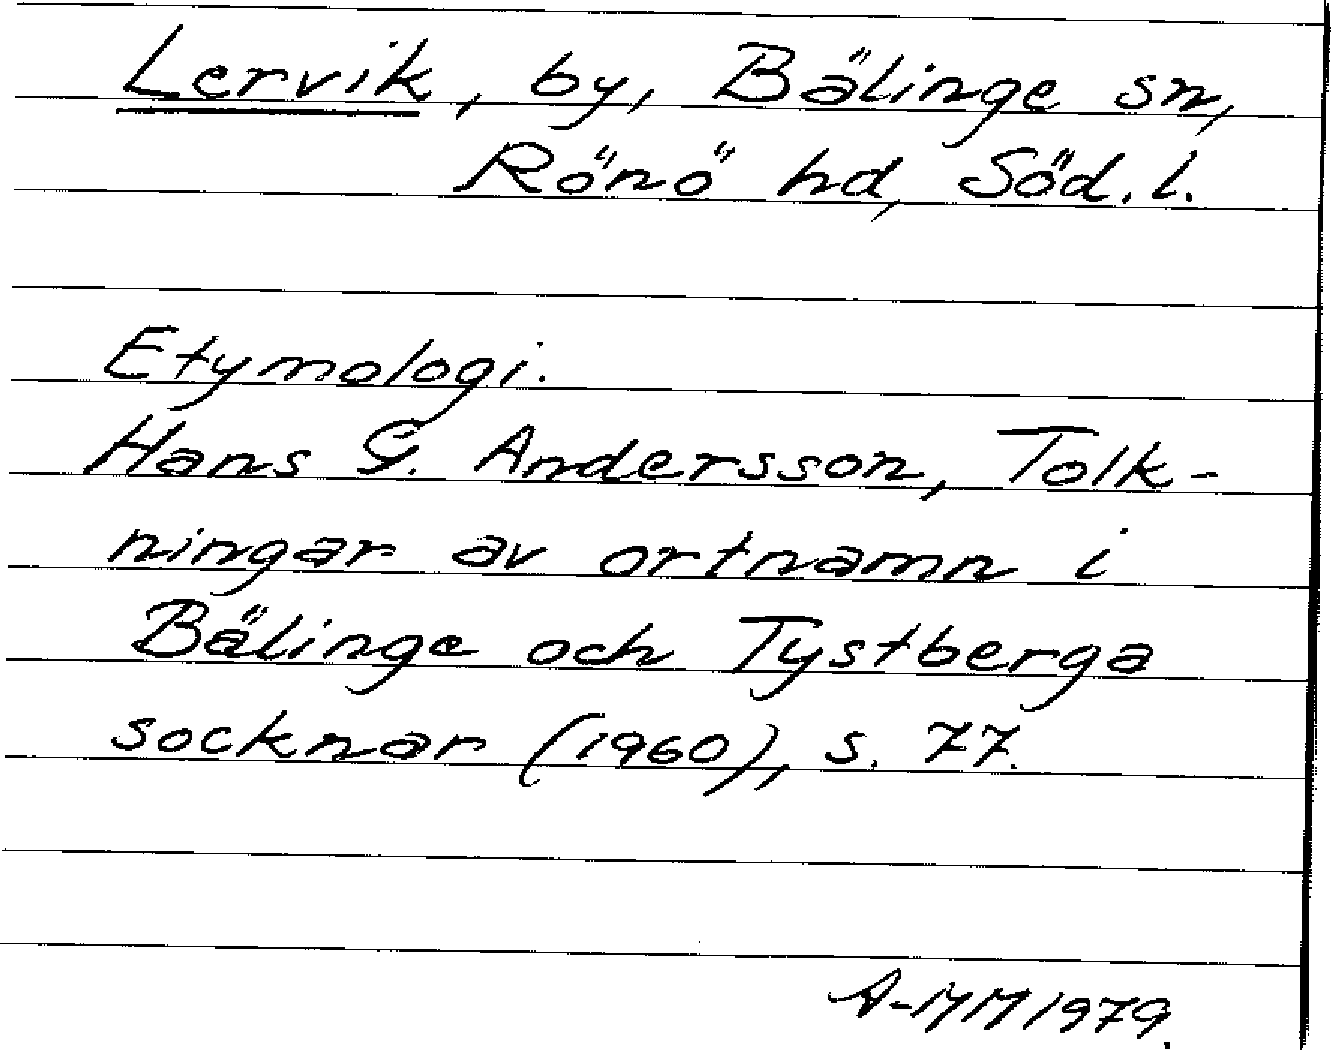 Lervik, by, Bälinge sn,
Rönö hd, Söd. l.
Etymologi.
Hans G. Andersson, Tolk-
ningar av ortnamn i
Bälinge och Tystberga
socknar (1960), s. 77.
A-MM 1979.